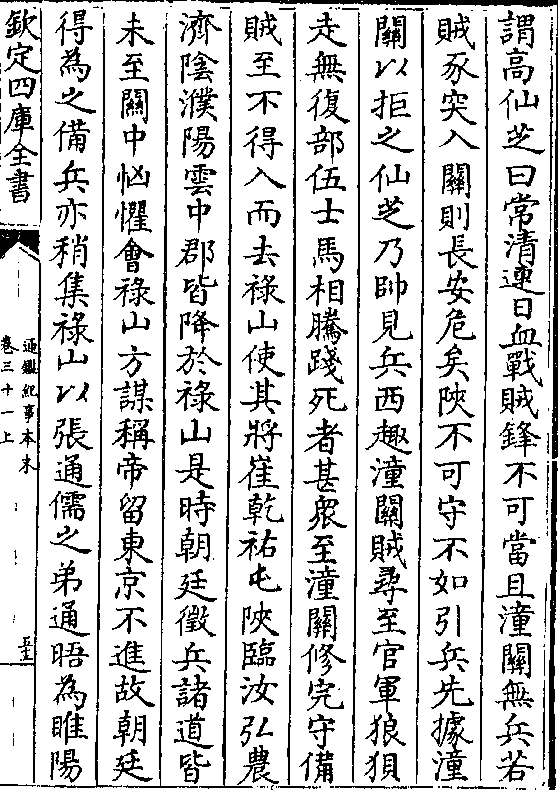 謂高仙芝曰常清連日血戰賊鋒不可當且潼關無兵若
賊豕突入關則長安危矣陜不可守不如引兵先據潼
關以拒之仙芝乃帥見兵西趣潼關賊尋至官軍狼狽
走無復部伍士馬相騰踐死者甚衆至潼關修完守備
賊至不得入而去祿山使其將崔乾祐屯陜臨汝弘農
濟陰濮陽雲中郡皆降於祿山是時朝廷徵兵諸道皆
未至關中恟懼會祿山方謀稱帝留東京不進故朝廷
得為之備兵亦稍集祿山以張通儒之弟通晤為睢陽
欽定四庫全書
通鑑紀事本末
卷三十一上